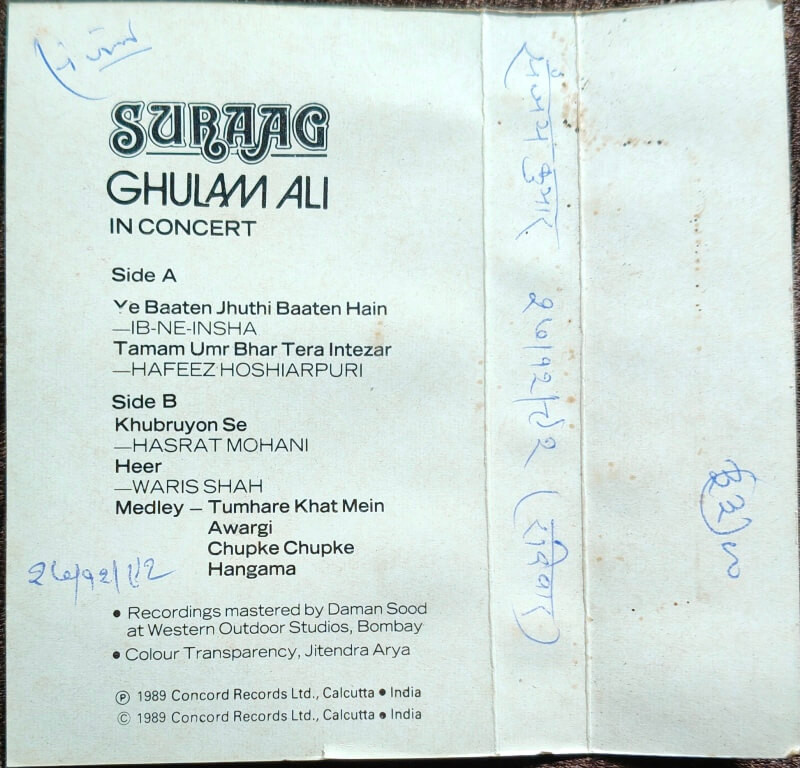 SURAAG
GHULAM ALI
IN CONCERT
Side A
Ye Baaten Jhuthi Baaten Hain
—IB-NE-INSHA
Tamam Umr Bhar Tera Intezar
—HAFEEZ HOSHIARPURI
Side B
Khubruyon Se
—HASRAT MOHANI
Heer
—WARIS SHAH
Medley — Tumhare Khat Mein
Awargi
Chupke Chupke
Hangama
• Recordings mastered by Daman Sood
at Western Outdoor Studios, Bombay
• Colour Transparency, Jitendra Arya
Ⓟ 1989 Concord Records Ltd., Calcutta • India
© 1989 Concord Records Ltd., Calcutta • India